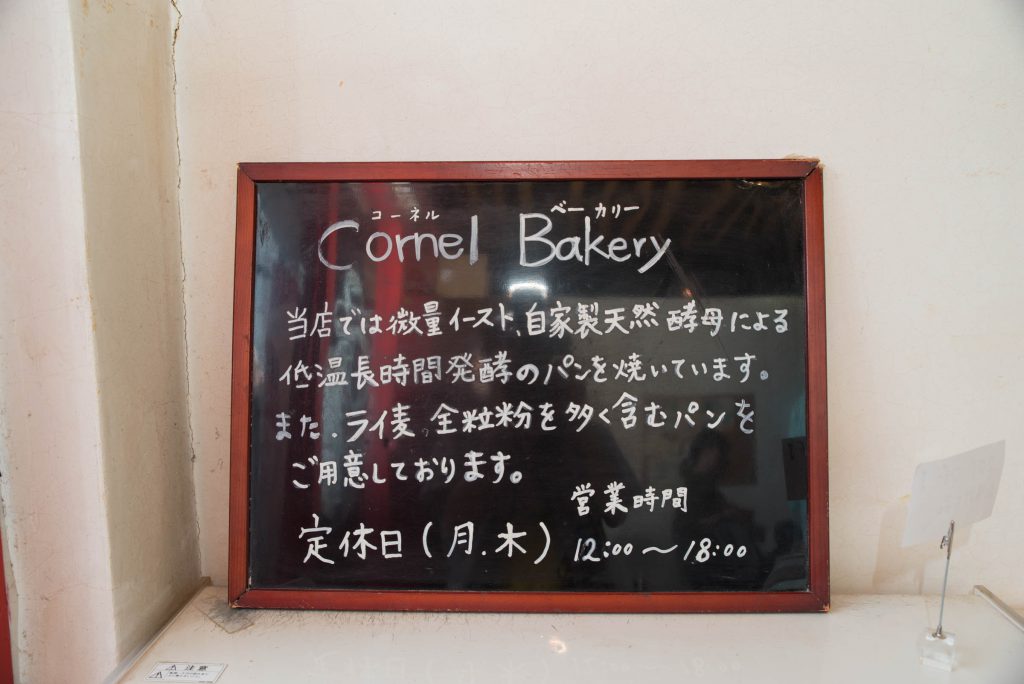 コーネル ベーカリー
Cornel Bakery
当店では微量イースト、自家製天然酵母による
低温長時間発酵のパンを焼いています。
また、ライ麦、全粒粉を多く含むパンを
ご用意しております。
営業時間
定休日(月.木) 12:00〜18:00
注意